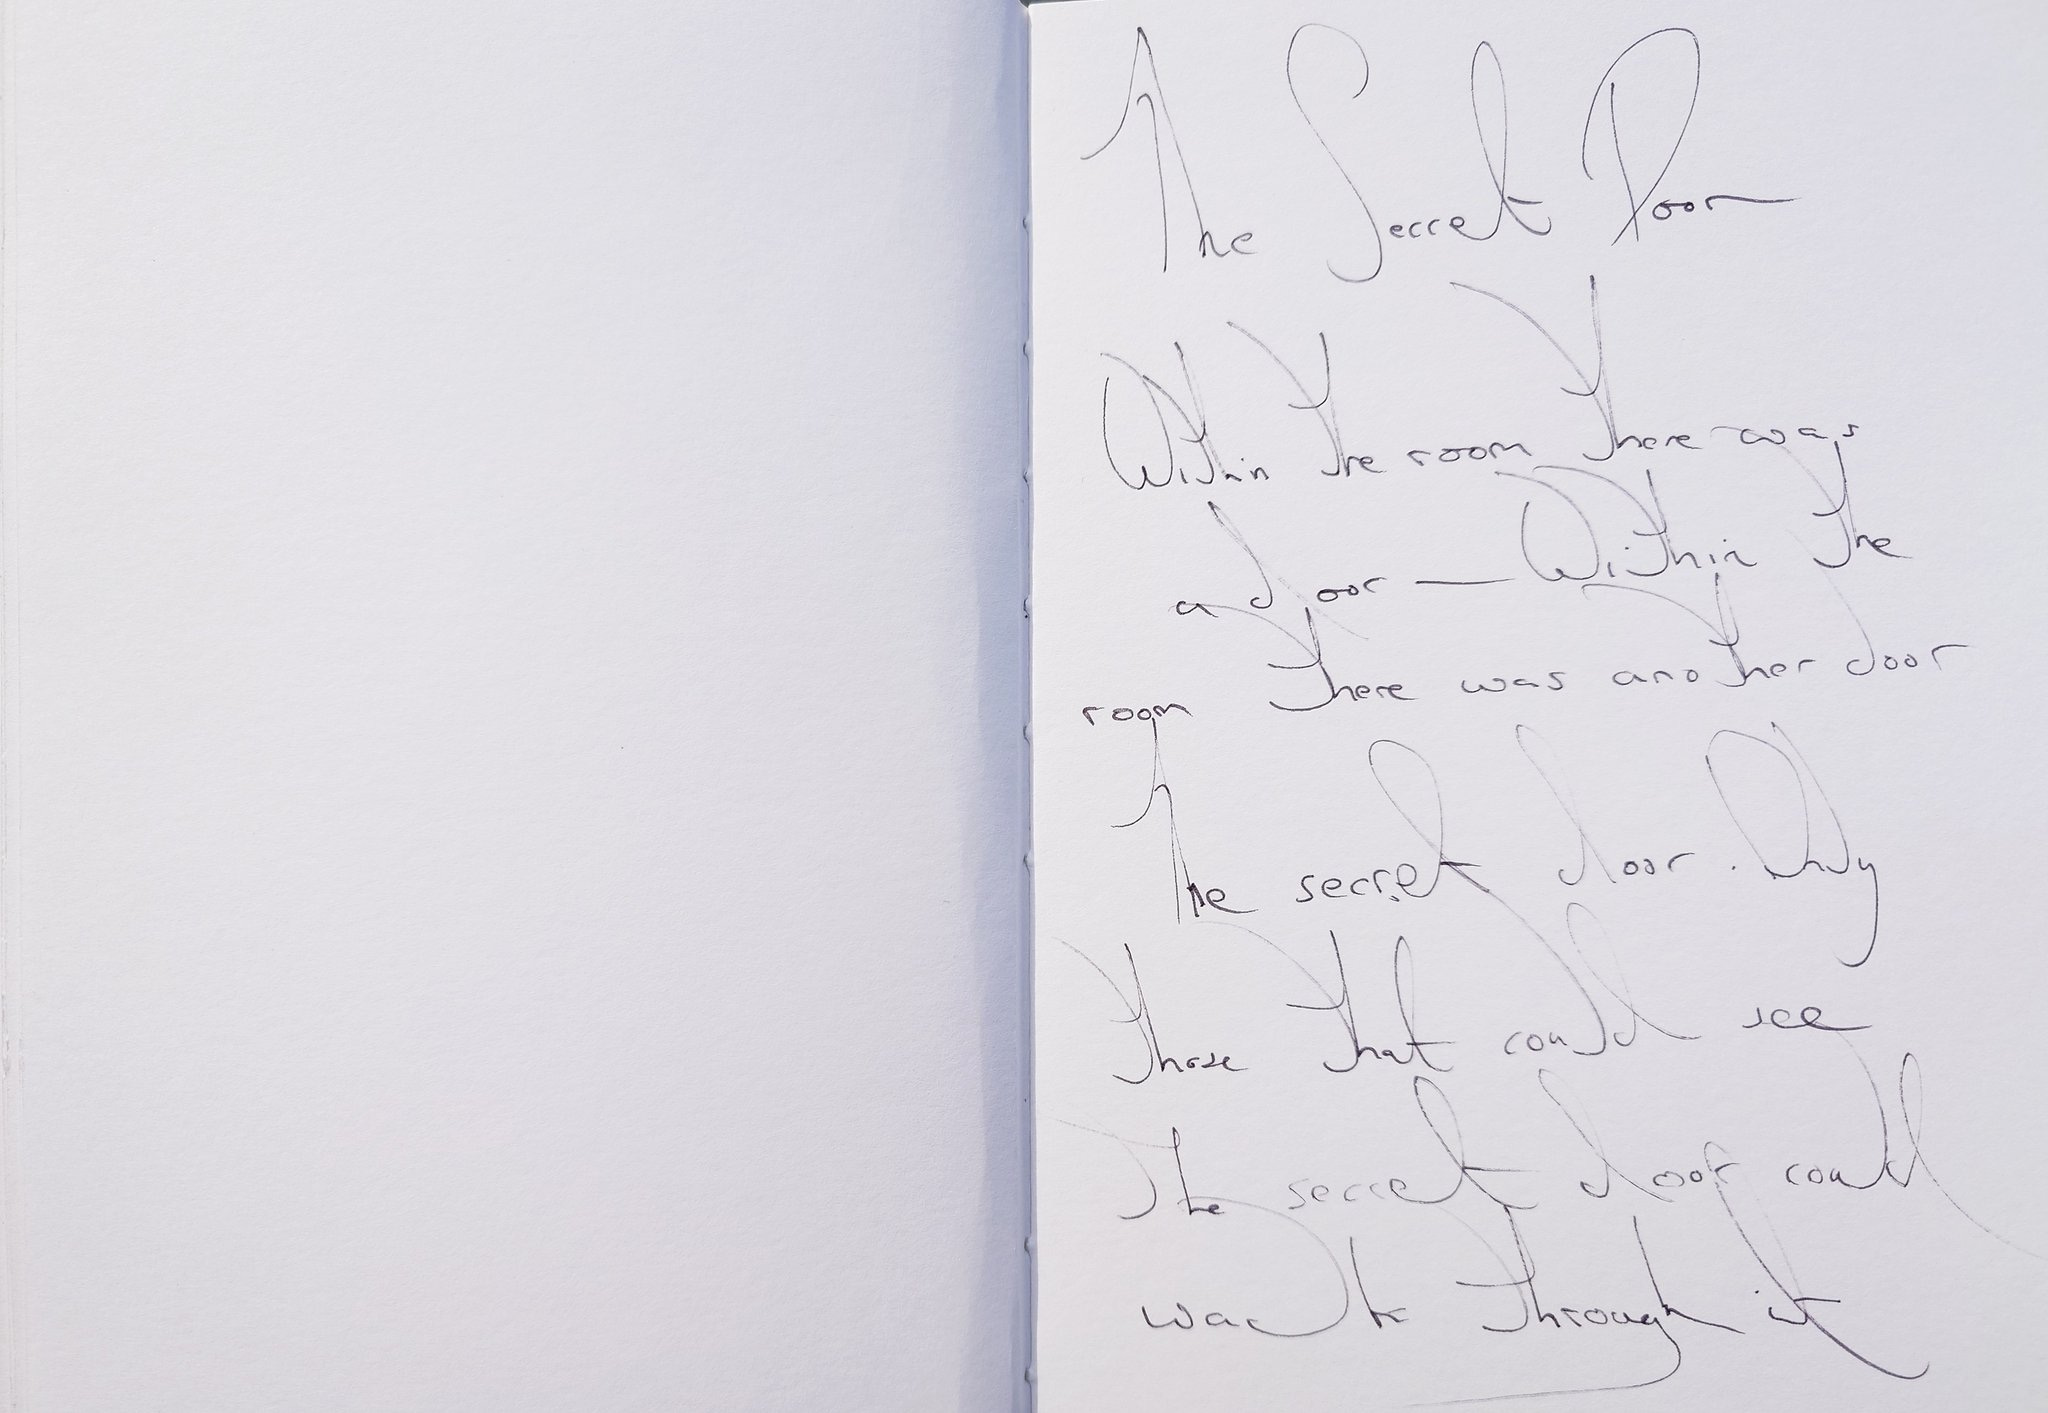 The Secret Door
Within the room there was
a door — Within the
room there was another door
The secret door. Only
those that could see
The secret door could
walk through it